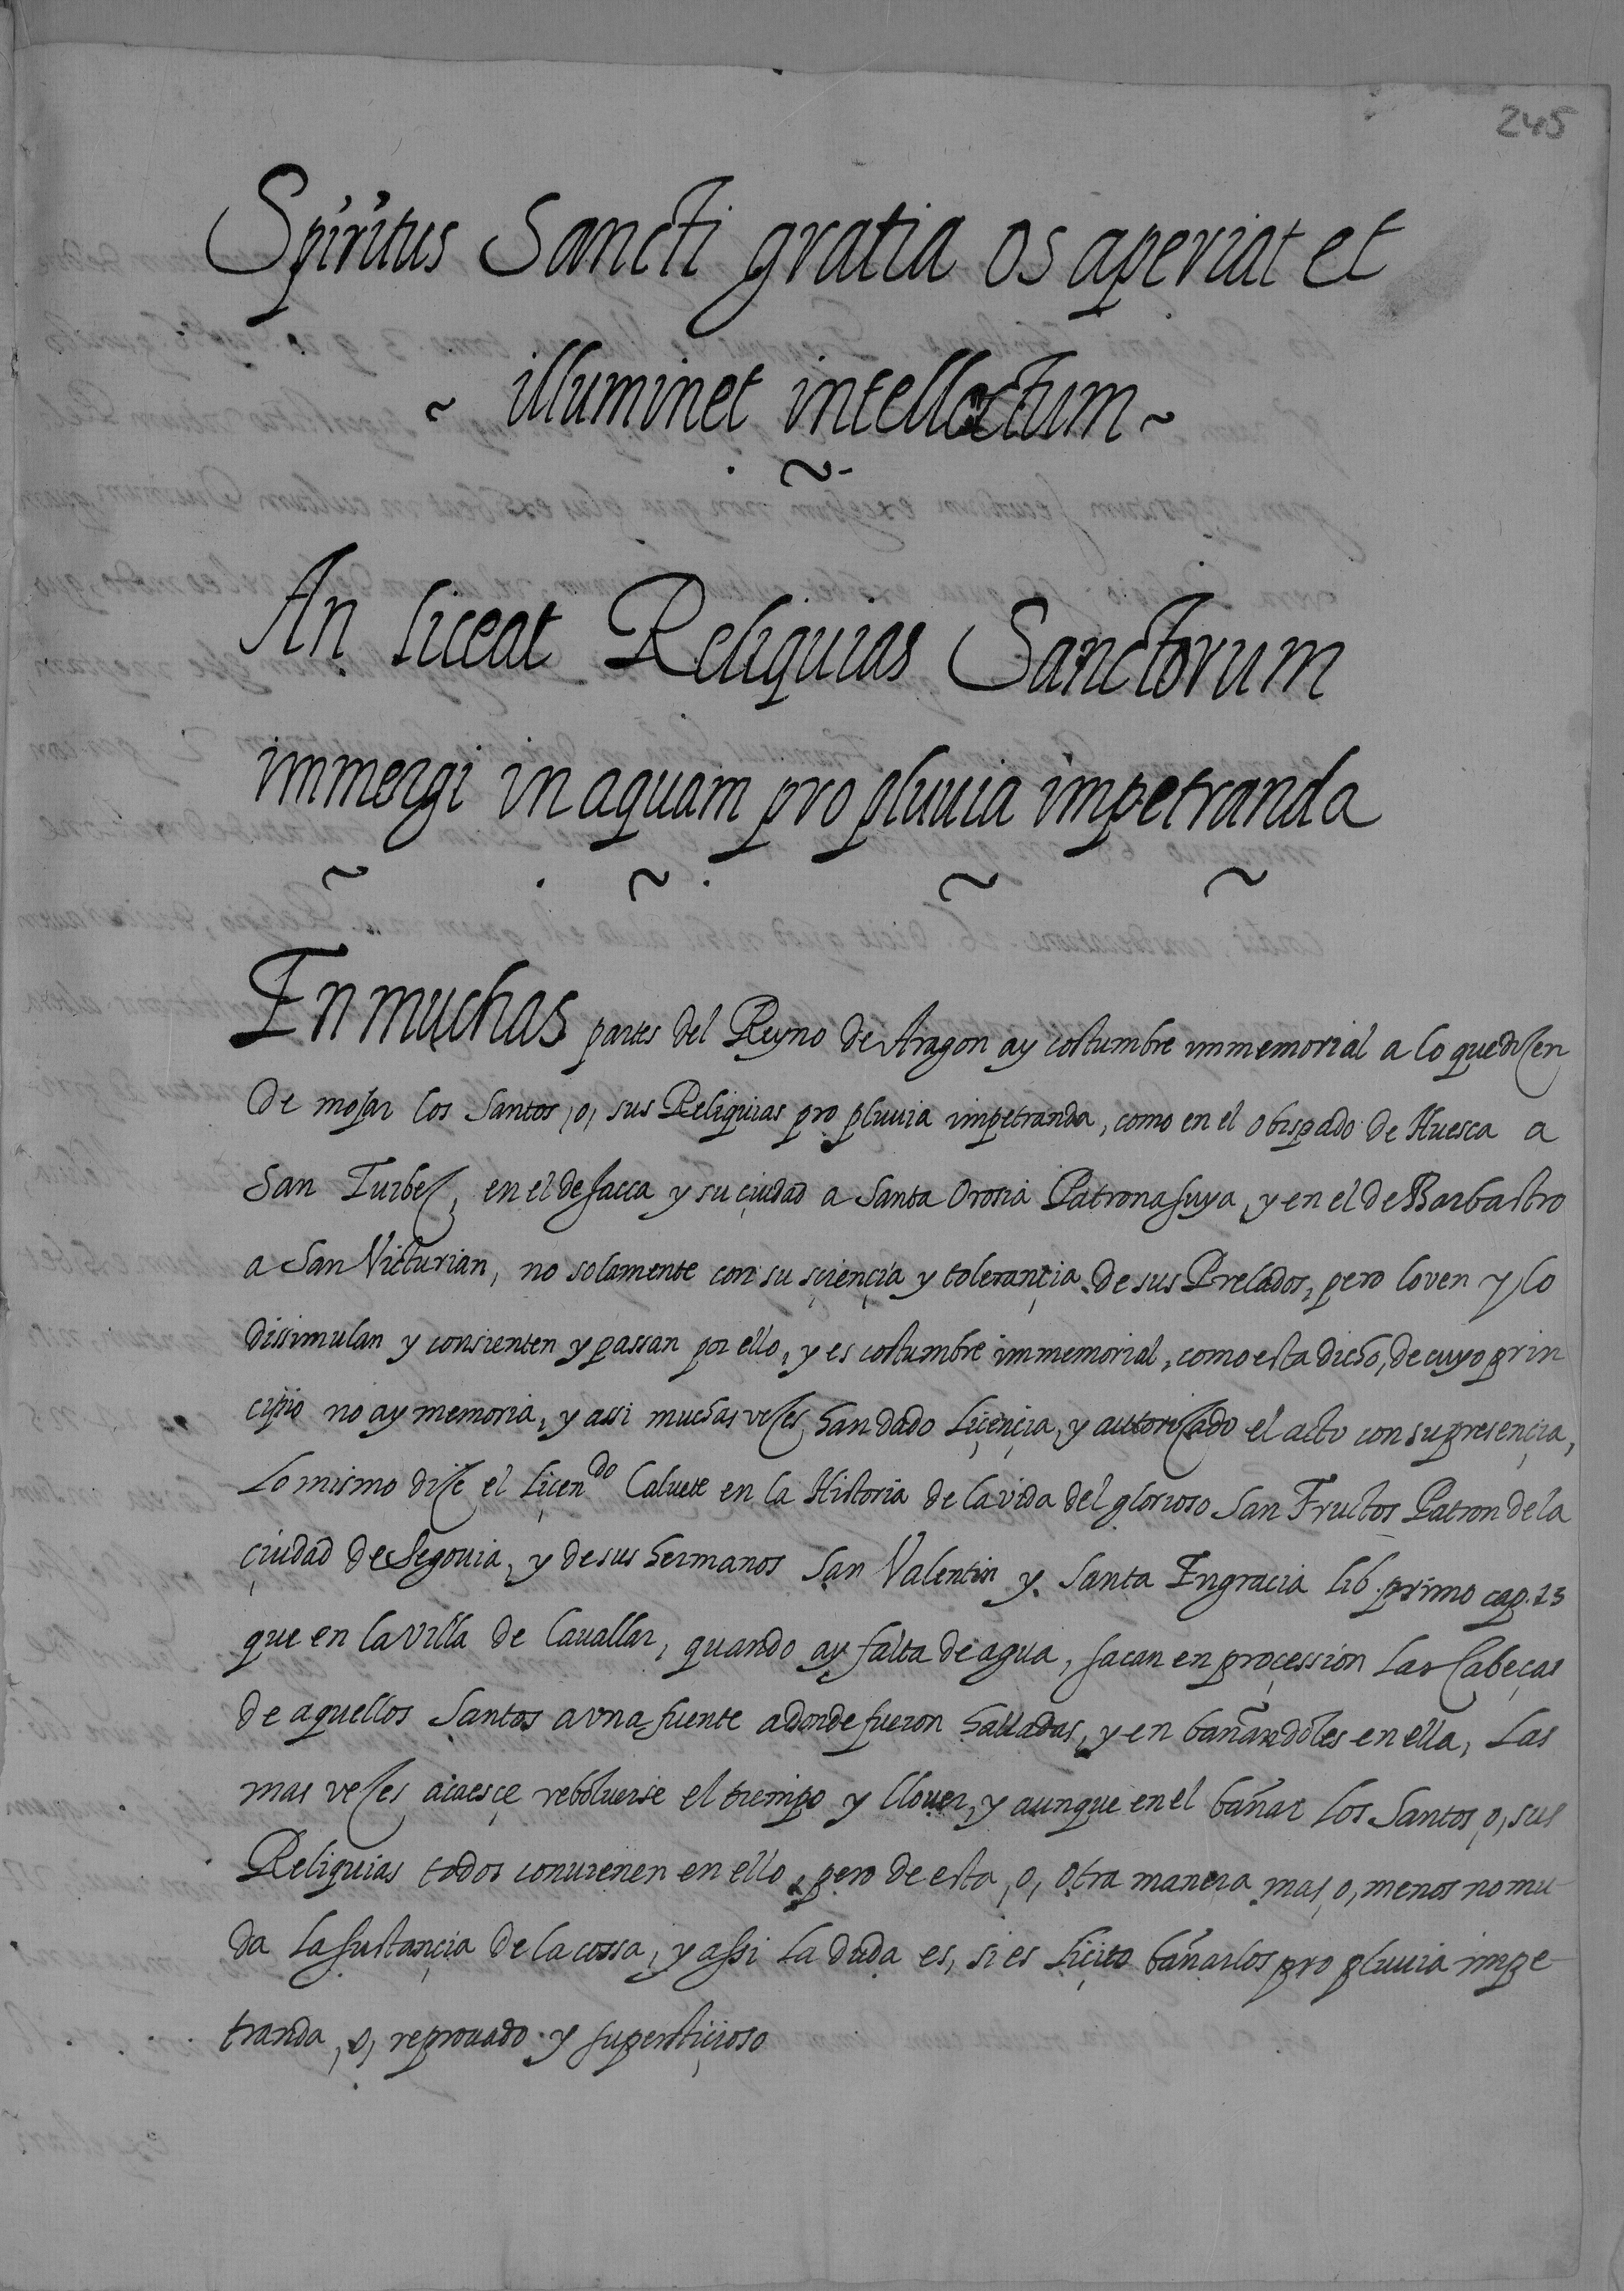 245
Spiritus Sancti gratia os aperiat et
~ illuminet intellectum ~
An liceat Reliquias Sanctorum
immergi in aquam pro pluuia impetranda
En muchas partes del Reyno de Aragon ay costumbre immemorial a lo que dizen
de mojar los Santos, o, sus Reliquias pro pluuia impetranda, como en el obispado de Huesca a
San Turbez, en el de Jacca y su ciudad a Santa Orosia Patrona suya, y en el de Barbastro
a San Victurian, no solamente con su sciençia y tolerançia de sus Prelados, pero lo ven y lo
dissimulan y consienten y passan por ello, y es costumbre immemorial, como esta dicho, de cuyo prin
cipio no ay memoria, y assi muchas vezes han dado Liçençia, y autorizado el acto con su presençia,
Lo mismo dize el Liçendo Caluete en la Historia de la vida del glorioso San Fructos Patron de la
çiudad de Segouia, y de sus hermanos San Valentin y Santa Engracia lib. primo cap. 23
que en la villa de Cauallar, quando ay falta de agua, sacan en proçession las Cabeças
de aquellos Santos a vna fuente adonde fueron halladas, y en bañandoles en ella, las
mas vezes acaesçe reboluerse el tiempo y llouer, y aunque en el bañar los Santos, o, sus
Reliquias todos conuienen en ello, pero de esta, o, otra manera mas, o, menos no mu-
da la sustançia de la cossa, y assi la duda es, si es liçito bañarlos pro pluuia impe-
tranda, o, reprouado y superstiçioso